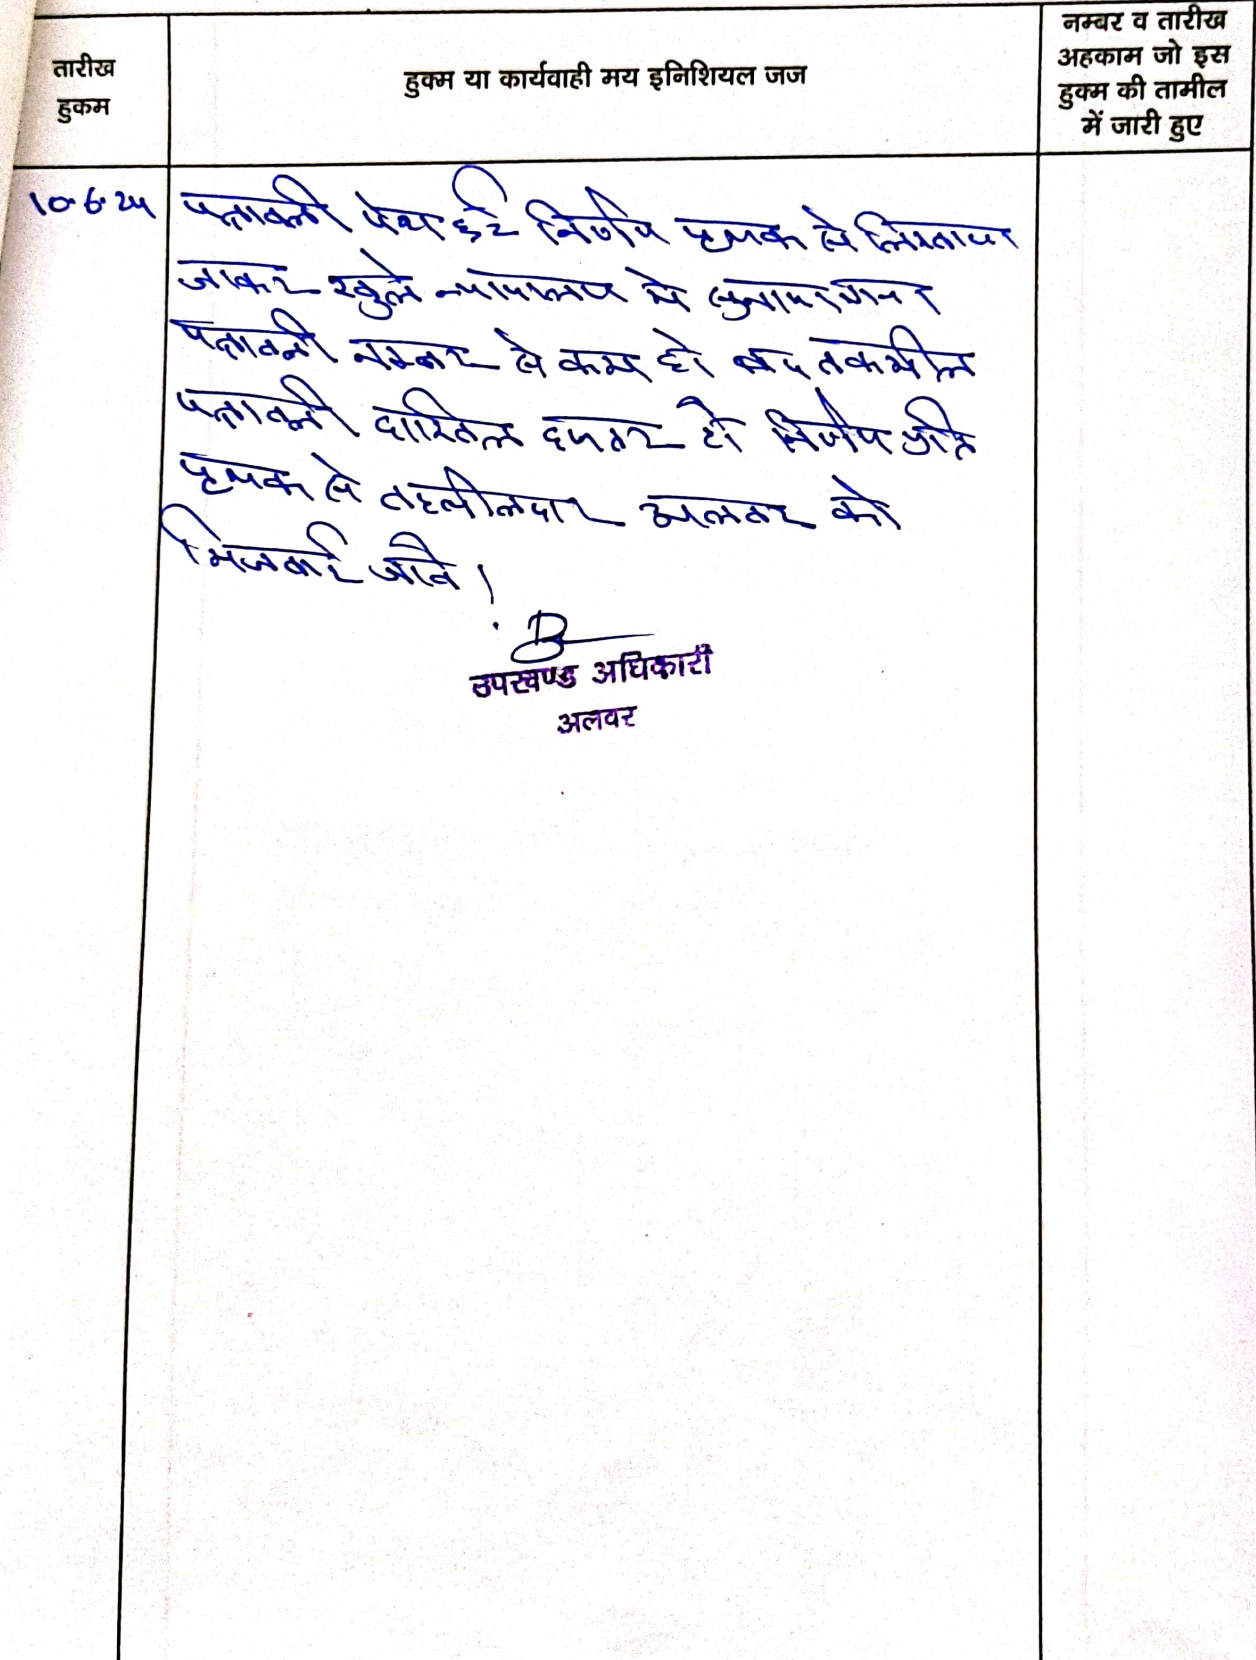 तारीख
हुकम
हुक्म या कार्यवाही मय इनिशियल जज
नम्बर व तारीख
अहकाम जो इस
हुक्म की तामील
में जारी हुए
10.6.24
पत्रावली पेश हुई निर्णय पृथक से लिखाया
जाकर खुले न्यायालय मे सुनाया गया।
पत्रावली नम्बर से कम हो बाद तकमील
पत्रावली दाखिल दफ्तर हो निर्णय प्रति
पृथक से तहसीलदार अलवर को
भिजवाई जावे।
उपखण्ड अधिकारी
अलवर